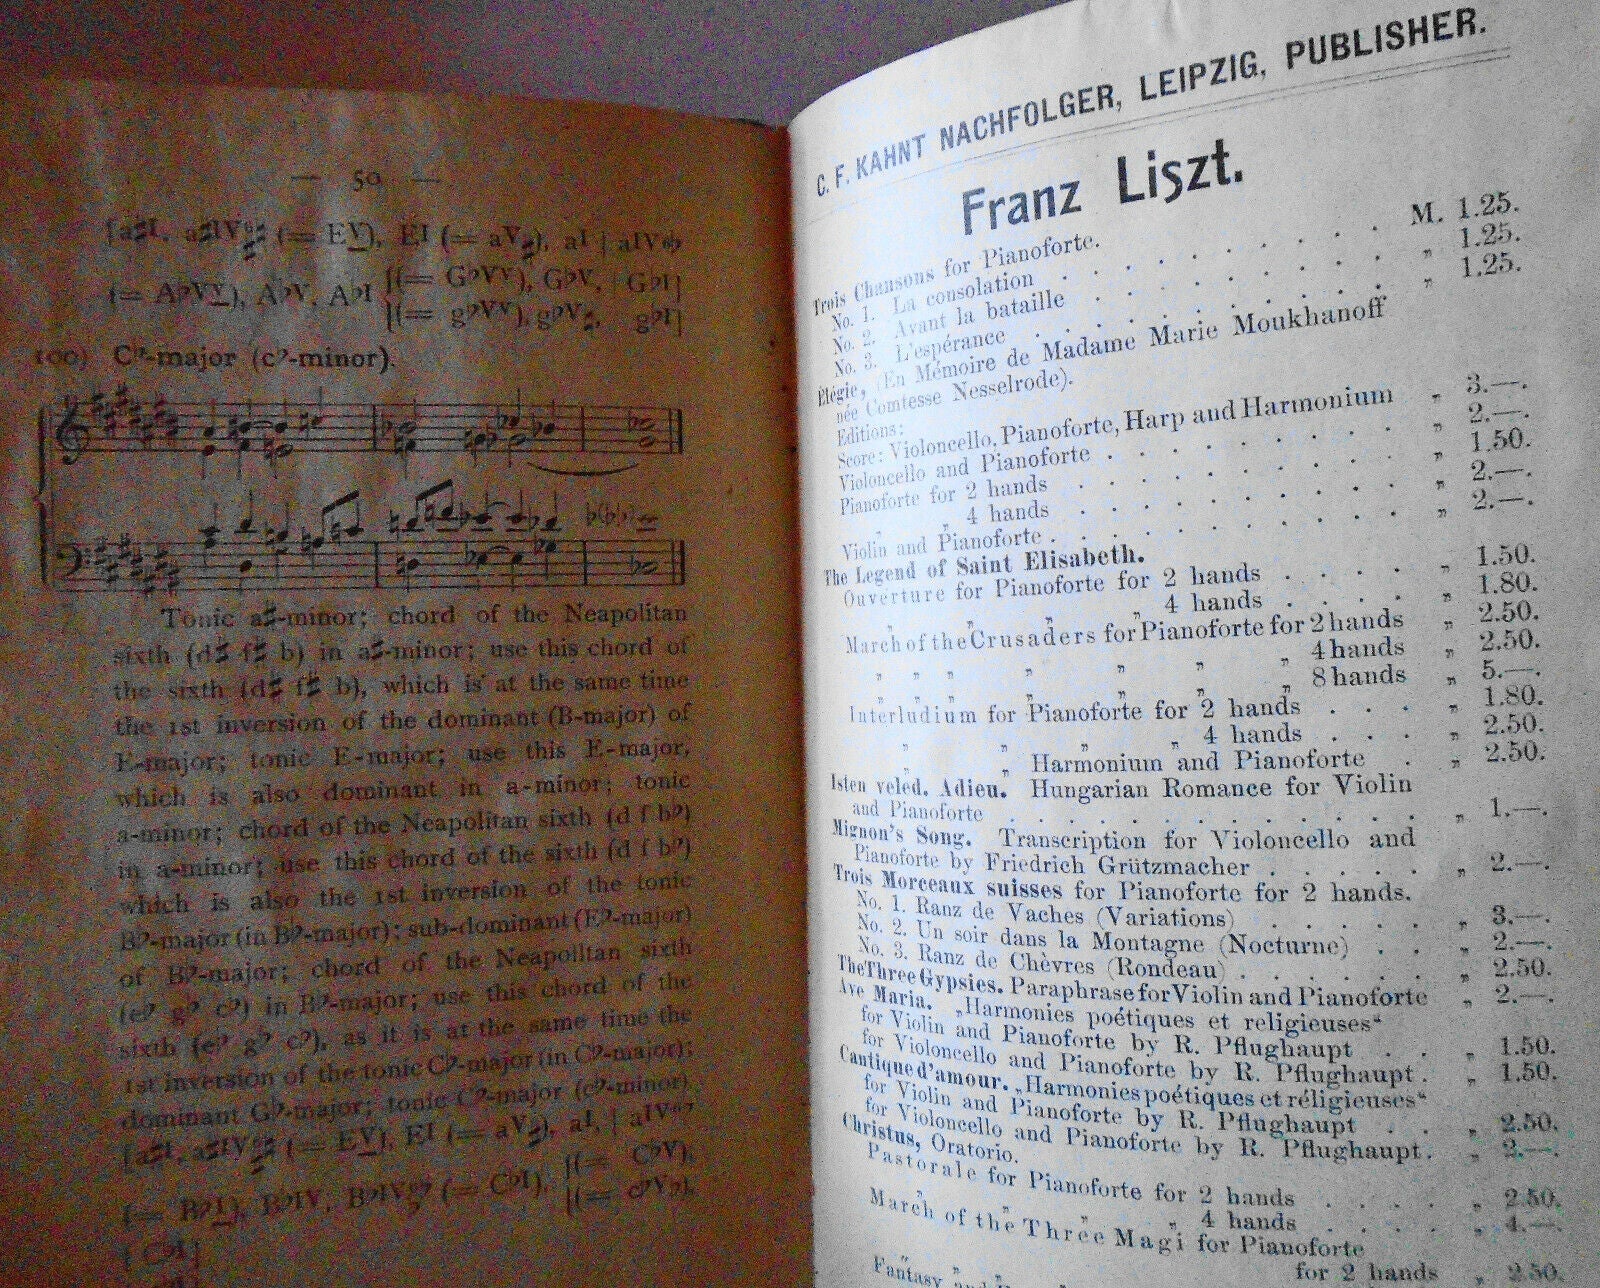 — 50 —
100) C♭-major (c♭-minor).
Tonic a♯-minor; chord of the Neapolitan
sixth (d♯ f♯ b) in a♯-minor; use this chord of
the sixth (d♯ f♯ b), which is at the same time
the 1st inversion of the dominant (B-major) of
E-major; tonic E-major; use this E-major,
which is also dominant in a-minor; tonic
a-minor; chord of the Neapolitan sixth (d f b♭)
in a-minor; use this chord of the sixth (d f b♭)
which is also the 1st inversion of the tonic
B♭-major (in B♭-major); sub-dominant (E♭-major)
of B♭-major; chord of the Neapolitan sixth
(e♭ g♭ c♭) in B♭-major; use this chord of the
sixth (e♭ g♭ c♭), as it is at the same time the
1st inversion of the tonic C♭-major (in C♭-major);
dominant G♭-major; tonic C♭-major (c♭-minor).
C. F. KAHNT NACHFOLGER, LEIPZIG, PUBLISHER.
Franz Liszt.
Trois Chansons for Pianoforte.
No. 1. La consolation . . . . . . . . . M. 1.25.
No. 2. Avant la bataille . . . . . . . . „ 1.25.
No. 3. L'espérance . . . . . . . . . „ 1.25.
Élégie, (En Mémoire de Madame Marie Moukhanoff
née Comtesse Nesselrode).
Editions:
Score: Violoncello, Pianoforte, Harp and Harmonium „ 3.—.
Violoncello and Pianoforte . . . . . . . „ 2.—.
Pianoforte for 2 hands . . . . . . . . „ 1.50.
„ „ 4 hands . . . . . . . . „ 2.—.
Violin and Pianoforte . . . . . . . . . „ 2.—.
The Legend of Saint Elisabeth.
Ouverture for Pianoforte for 2 hands . . . . „ 1.50.
„ „ „ „ 4 hands . . . . „ 1.80.
March of the Crusaders for Pianoforte for 2 hands „ 2.50.
„ „ „ „ „ „ 4 hands „ 2.50.
„ „ „ „ „ „ 8 hands „ 5.—.
Interludium for Pianoforte for 2 hands . . . „ 1.80.
„ „ „ „ 4 hands . . . „ 2.50.
„ „ Harmonium and Pianoforte . „ 2.50.
Isten veled. Adieu. Hungarian Romance for Violin
and Pianoforte . . . . . . . . . . . „ 1.—.
Mignon's Song. Transcription for Violoncello and
Pianoforte by Friedrich Grützmacher . . . . . „ 2.—.
Trois Morceaux suisses for Pianoforte for 2 hands.
No. 1. Ranz de Vaches (Variations) . . . . . „ 3.—.
No. 2. Un soir dans la Montagne (Nocturne) . . „ 2.—.
No. 3. Ranz de Chèvres (Rondeau) . . . . . . „ 2.50.
The Three Gypsies. Paraphrase for Violin and Pianoforte „ 2.—.
Ave Maria. „Harmonies poétiques et religieuses“
for Violin and Pianoforte by R. Pflughaupt . . „ 1.50.
for Violoncello and Pianoforte by R. Pflughaupt . „ 1.50.
Cantique d'amour. „Harmonies poétiques et réligieuses“
for Violin and Pianoforte by R. Pflughaupt . . „ 2.50.
for Violoncello and Pianoforte by R. Pflughaupt . „ 2.—.
Christus, Oratorio.
Pastorale for Pianoforte for 2 hands . . . . „ 2.50.
„ „ „ „ 4 hands . . . . „ 4.—.
March of the Three Magi for Pianoforte
for 2 hands „ 2.50.
Fantasy and